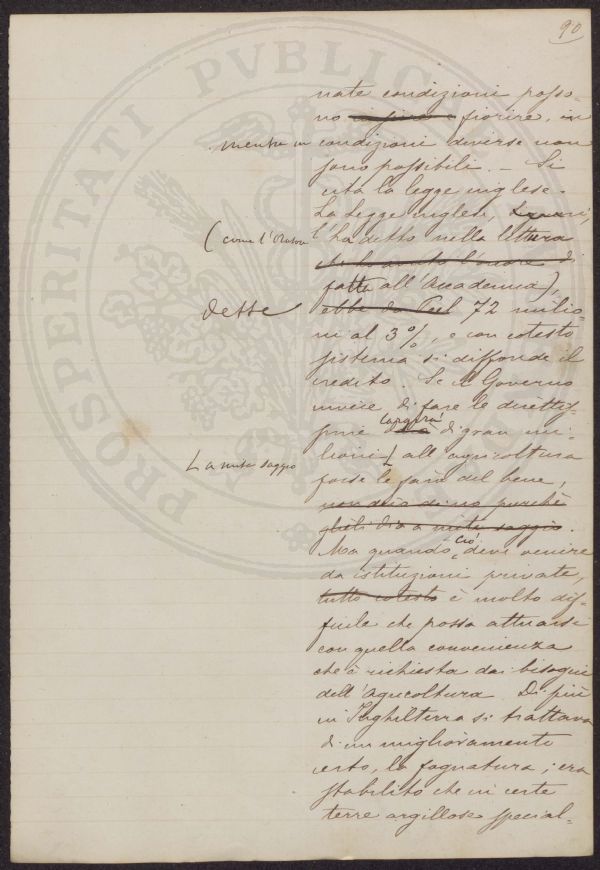 90
nate condizioni posso-
no fiorire, in
mentre in condizioni diverse non
sono possibili. - Si
cita la legge inglese.
La legge inglese,
(come l'Oratore l'ha detto nella lettura
fatta all'Accademia),
dette 72 milio-
ni al 3%, e con cotesto
sistema si diffonde il
credito. Se il Governo
invece di fare le
largirà di gran mi-
lioni [ all'agricoltura
[ a mite saggio
forse le farà del bene,
non dico di no purchè
glieli dia a mite saggio.
Ma quando ciò deve venire
da istituzioni private,
tutto cotesto è molto dif-
ficile che possa attuarsi
con quella convenienza
che è richiesta dai bisogni
dell'Agricoltura. Di più
in Inghilterra si trattava
di un miglioramento
certo, la fognatura; era
stabilito che in certe
terre argillose special-
PROSPERITATI PVBLICAE